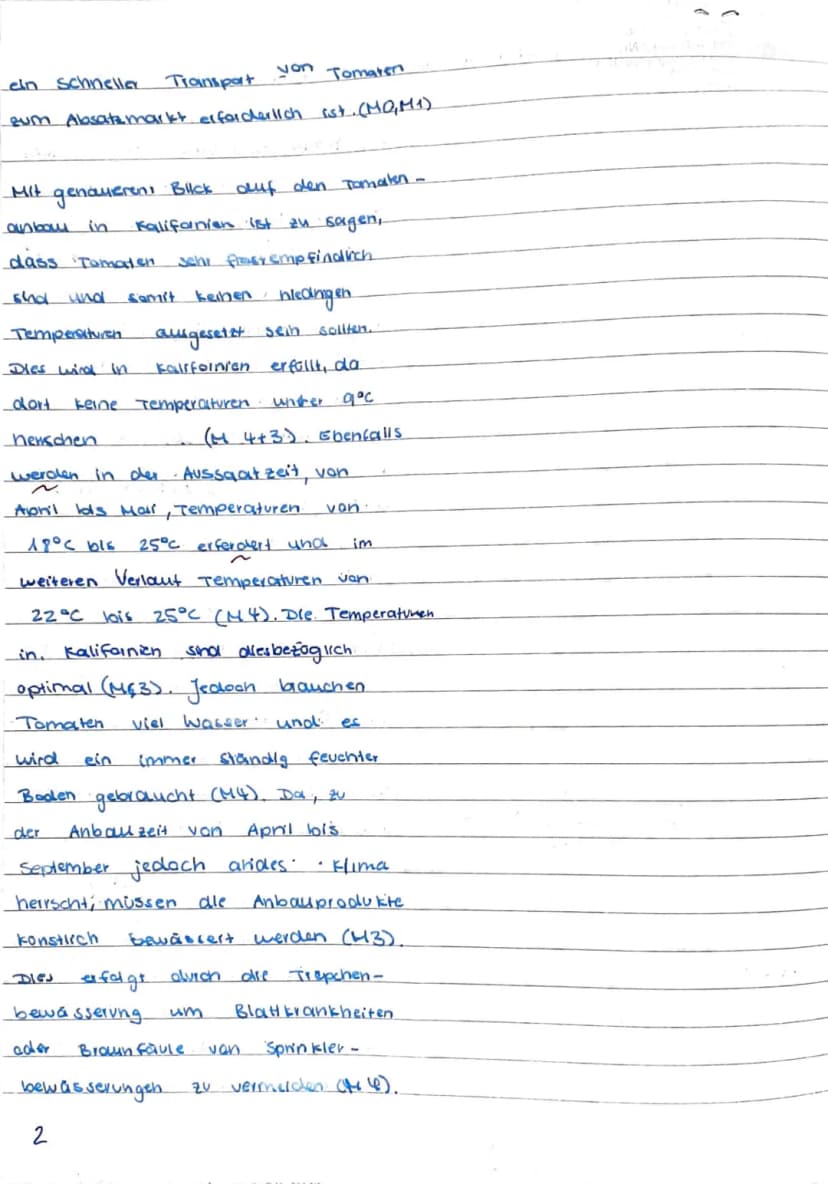 ein schneller Transport von Tomaten
zum Absatzmarkt erforderlich ist. (M0,M1)
Mit genauerem Blick auf den Tomaten-
anbau in Kalifornien ist zu sagen,
dass Tomaten sehr frostempfindlich
sind und somit keinen niedrigen
Temperaturen ausgesetzt sein sollten.
Dies wird in Kalifornien erfüllt, da
dort keine Temperaturen unter 9°C
herrschen (M 4+3). Ebenfalls
werden in der Aussaatzeit, von
April bis Mai, Temperaturen von
18°C bis 25°C erfordert und im
weiteren Verlauf Temperaturen von
22°C bis 25°C (M4). Die Temperaturen
in Kalifornien sind diesbezüglich
optimal (M&3). Jedoch brauchen
Tomaten viel Wasser und es
wird ein immer ständig feuchter
Boden gebraucht (M4). Da, zu
der Anbauzeit von April bis
September jedoch arides Klima
herrscht, müssen die Anbauprodukte
künstlich bewässert werden (M3).
Dies erfolgt durch die Tröpchen-
bewässerung um Blattkrankheiten
oder Braunfäule von Sprinkler-
bewässerungen zu vermeiden
2